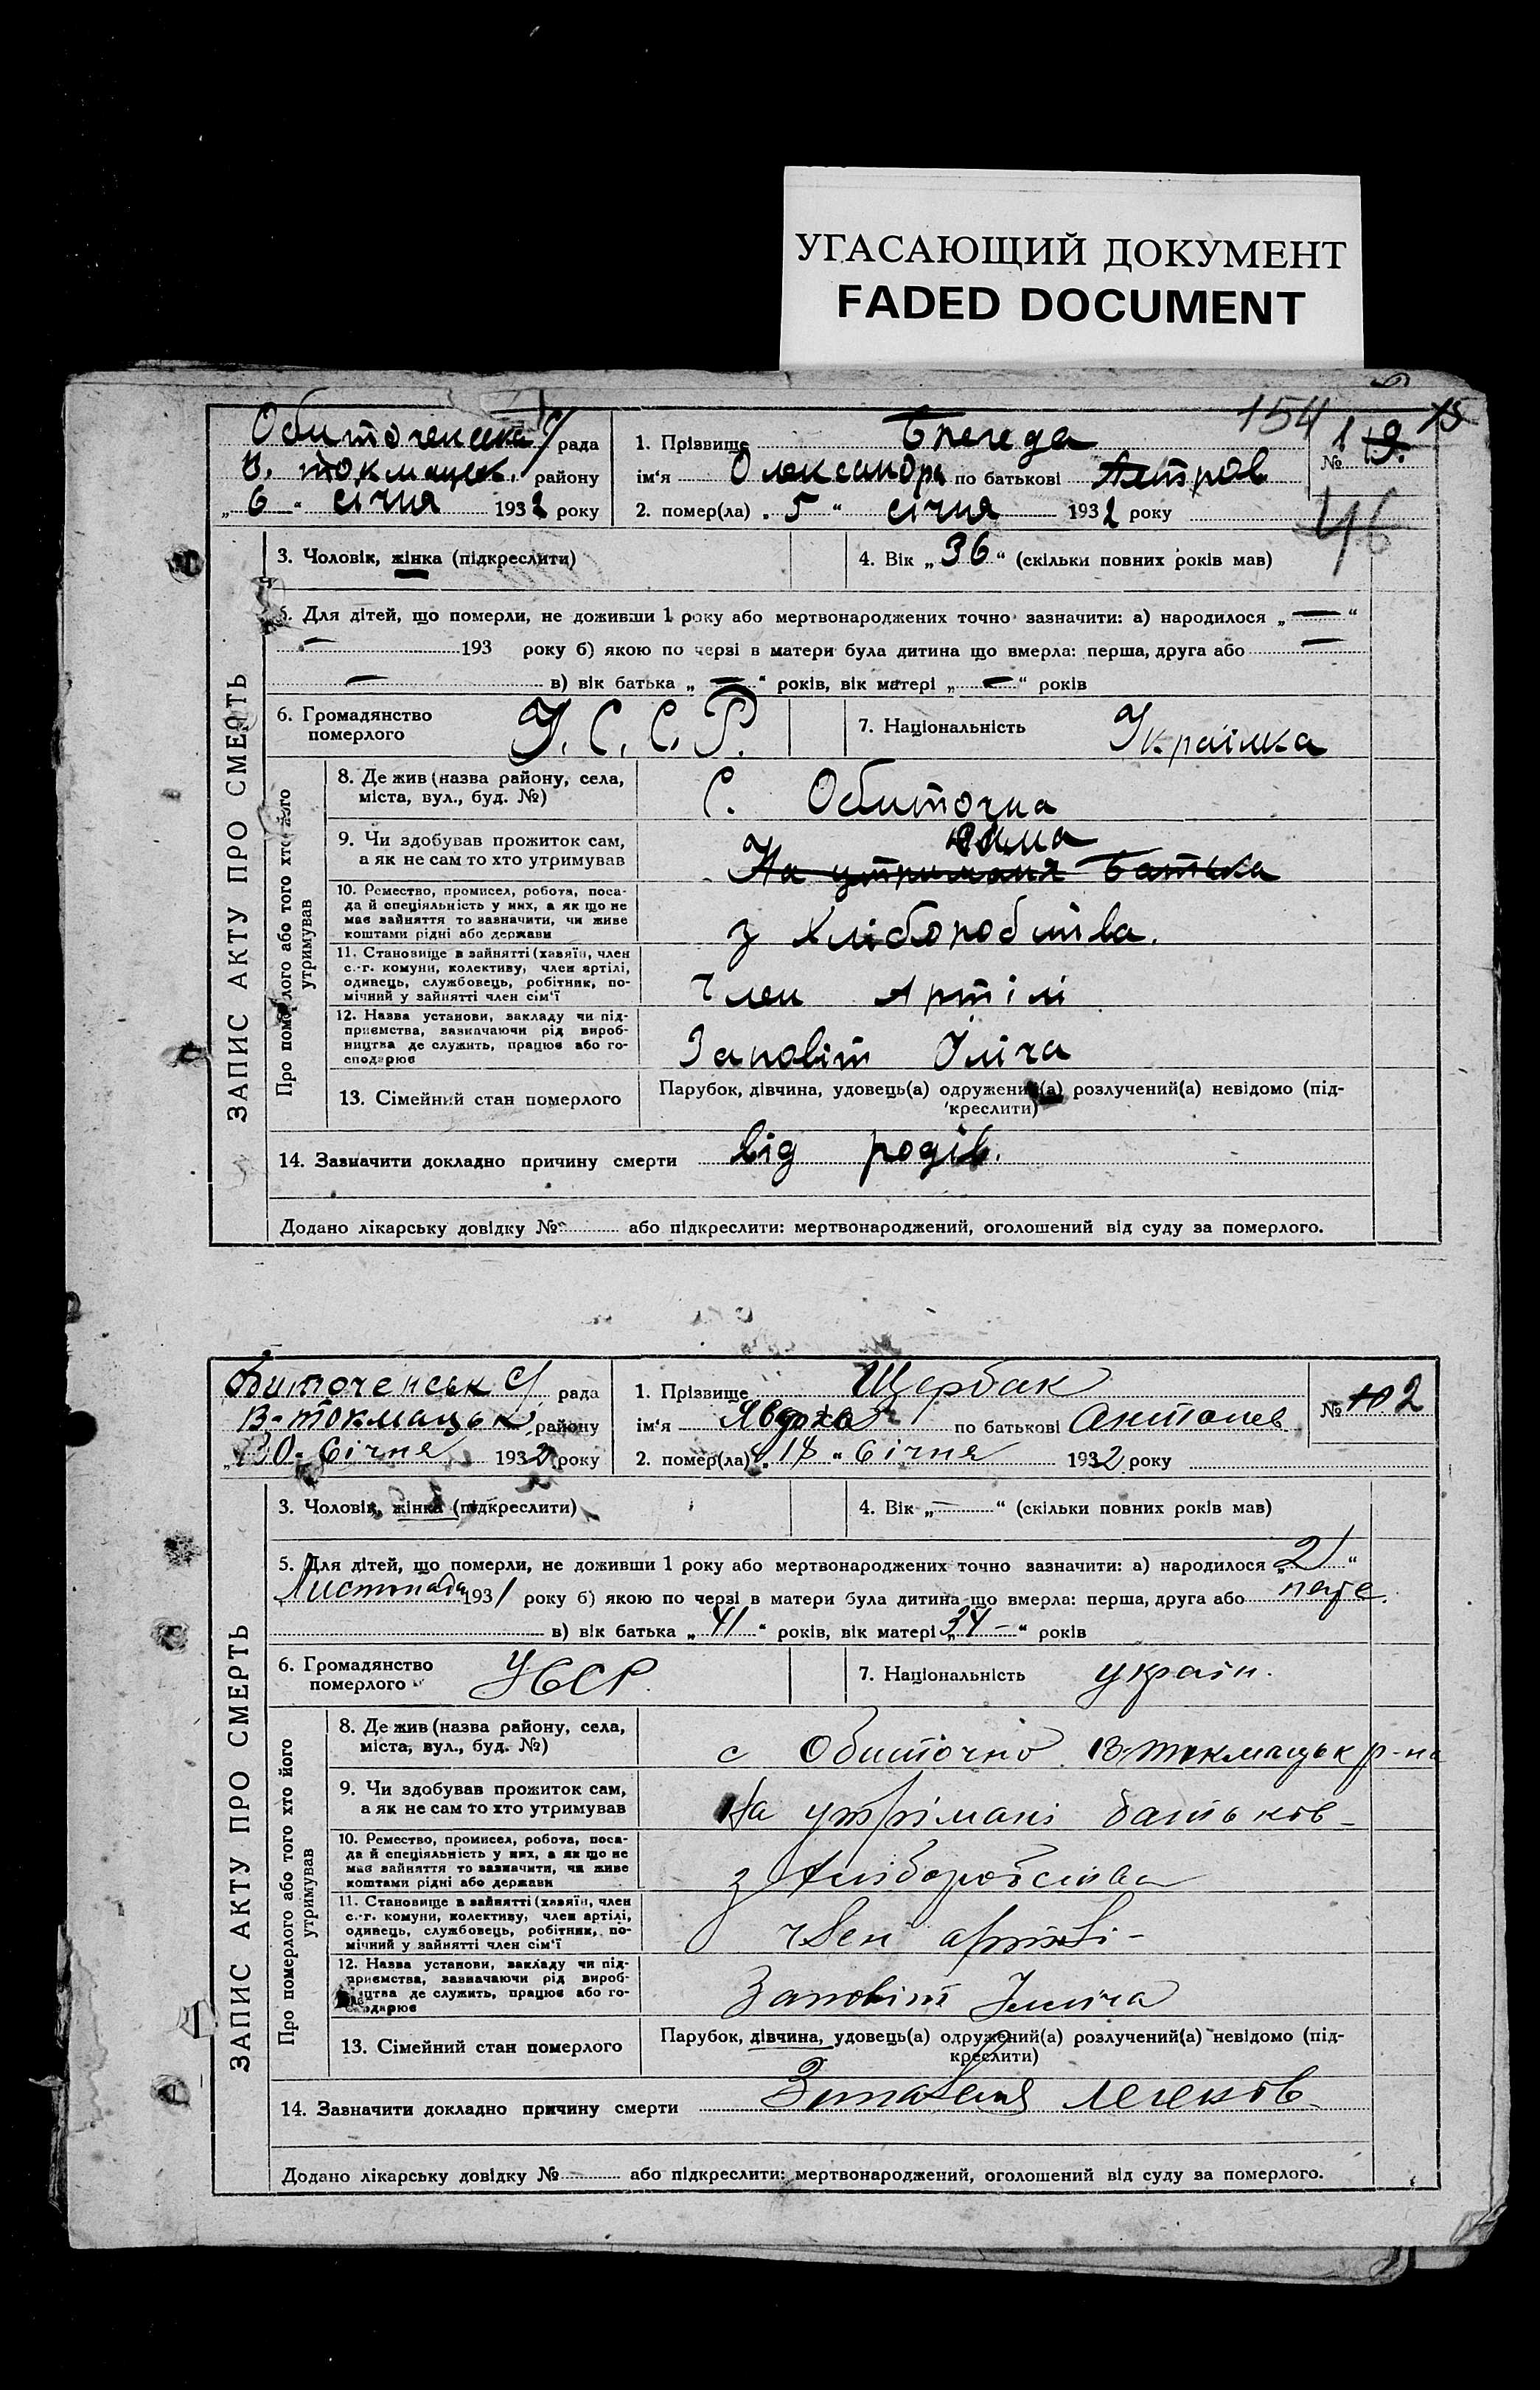 УГАСАЮЩИЙ ДОКУМЕНТ
FADED DOCUMENT
154 15
Обиточенська с/рада
В. токмацьк. району
„ 6 “ січня 1932 року
1. Прізвище
ім‘я Олександра по батькові
2. помер(ла) „ 5 “ січня 1932 року
№ 1 9.
46
ЗАПИС АКТУ ПРО СМЕРТЬ
3. Чоловік, жінка (підкреслити)
4. Вік „ 36 “ (скільки повних років мав)
5. Для дітей, що померли, не доживши 1 року або мертвонароджених точно зазначити: а) народилося „ — “
— 193 року б) якою по черзі в матери була дитина що вмерла: перша, друга або —
— в) вік батька „ — “ років, вік матері „ — “ років
6. Громадянство
померлого
У. С. С. Р.
7. Національність Українка
Про померлого або того хто його
утримував
8. Де жив (назва району, села,
міста, вул., буд. №)
С. Обиточна
9. Чи здобував прожиток сам,
а як не сам то хто утримував
сама
На утриманя батька
10. Ремество, промисел, робота, поса-
да й спеціяльність у них, а як що не
має зайняття то зазначити, чи живе
коштами рідні або держави
з хліборобства.
11. Становище в зайнятті (хазяїн, член
с.-г. комуни, колективу, член артілі,
одинець, службовець, робітник, по-
мічний у зайнятті член сім‘ї
Член Артілі
12. Назва установи, закладу чи під-
приємства, зазначаючи рід вироб-
ництва де служить, працює або го-
сподарює
Заповіт Іліча
13. Сімейний стан померлого
Парубок, дівчина, удовець(а) одружений(а) розлучений(а) невідомо (під-
креслити)
14. Зазначити докладно причину смерти від родів.
Додано лікарську довідку № або підкреслити: мертвонароджений, оголошений від суду за померлого.
Обиточенськ с/ рада
В-токмацьк району
„ 20 “ Січня 1932 року
1. Прізвище Щербак
ім‘я Явдоха по батькові Антонов
2. помер(ла) „ 18 “ Січня 1932 року
№ 10 2
ЗАПИС АКТУ ПРО СМЕРТЬ
3. Чоловік, жінка (підкреслити)
4. Вік „ — “ (скільки повних років мав)
5. Для дітей, що померли, не доживши 1 року або мертвонароджених точно зазначити: а) народилося „ 21 “
Листопада 1931 року б) якою по черзі в матери була дитина що вмерла: перша, друга або
в) вік батька „ 41 “ років, вік матері „ 34 — “ років
6. Громадянство
померлого
УССР.
7. Національність україн.
Про померлого або того хто його
утримував
8. Де жив (назва району, села,
міста, вул., буд. №)
с Обиточно В-токмацьк р-на
9. Чи здобував прожиток сам,
а як не сам то хто утримував
На утрімані батьков -
10. Ремество, промисел, робота, поса-
да й спеціяльність у них, а як що не
має зайняття то зазначити, чи живе
коштами рідні або держави
з хліборобства
11. Становище в зайнятті (хазяїн, член
с.-г. комуни, колективу, член артілі,
одинець, службовець, робітник, по-
мічний у зайнятті член сім‘ї
член артілі -
12. Назва установи, закладу чи під-
приємства, зазначаючи рід вироб-
ництва де служить, працює або го-
сподарює
Заповіт Ілліча
13. Сімейний стан померлого
Парубок, дівчина, удовець(а) одружений(а) розлучений(а) невідомо (під-
креслити)
14. Зазначити докладно причину смерти Запаленя легенов -
Додано лікарську довідку № або підкреслити: мертвонароджений, оголошений від суду за померлого.